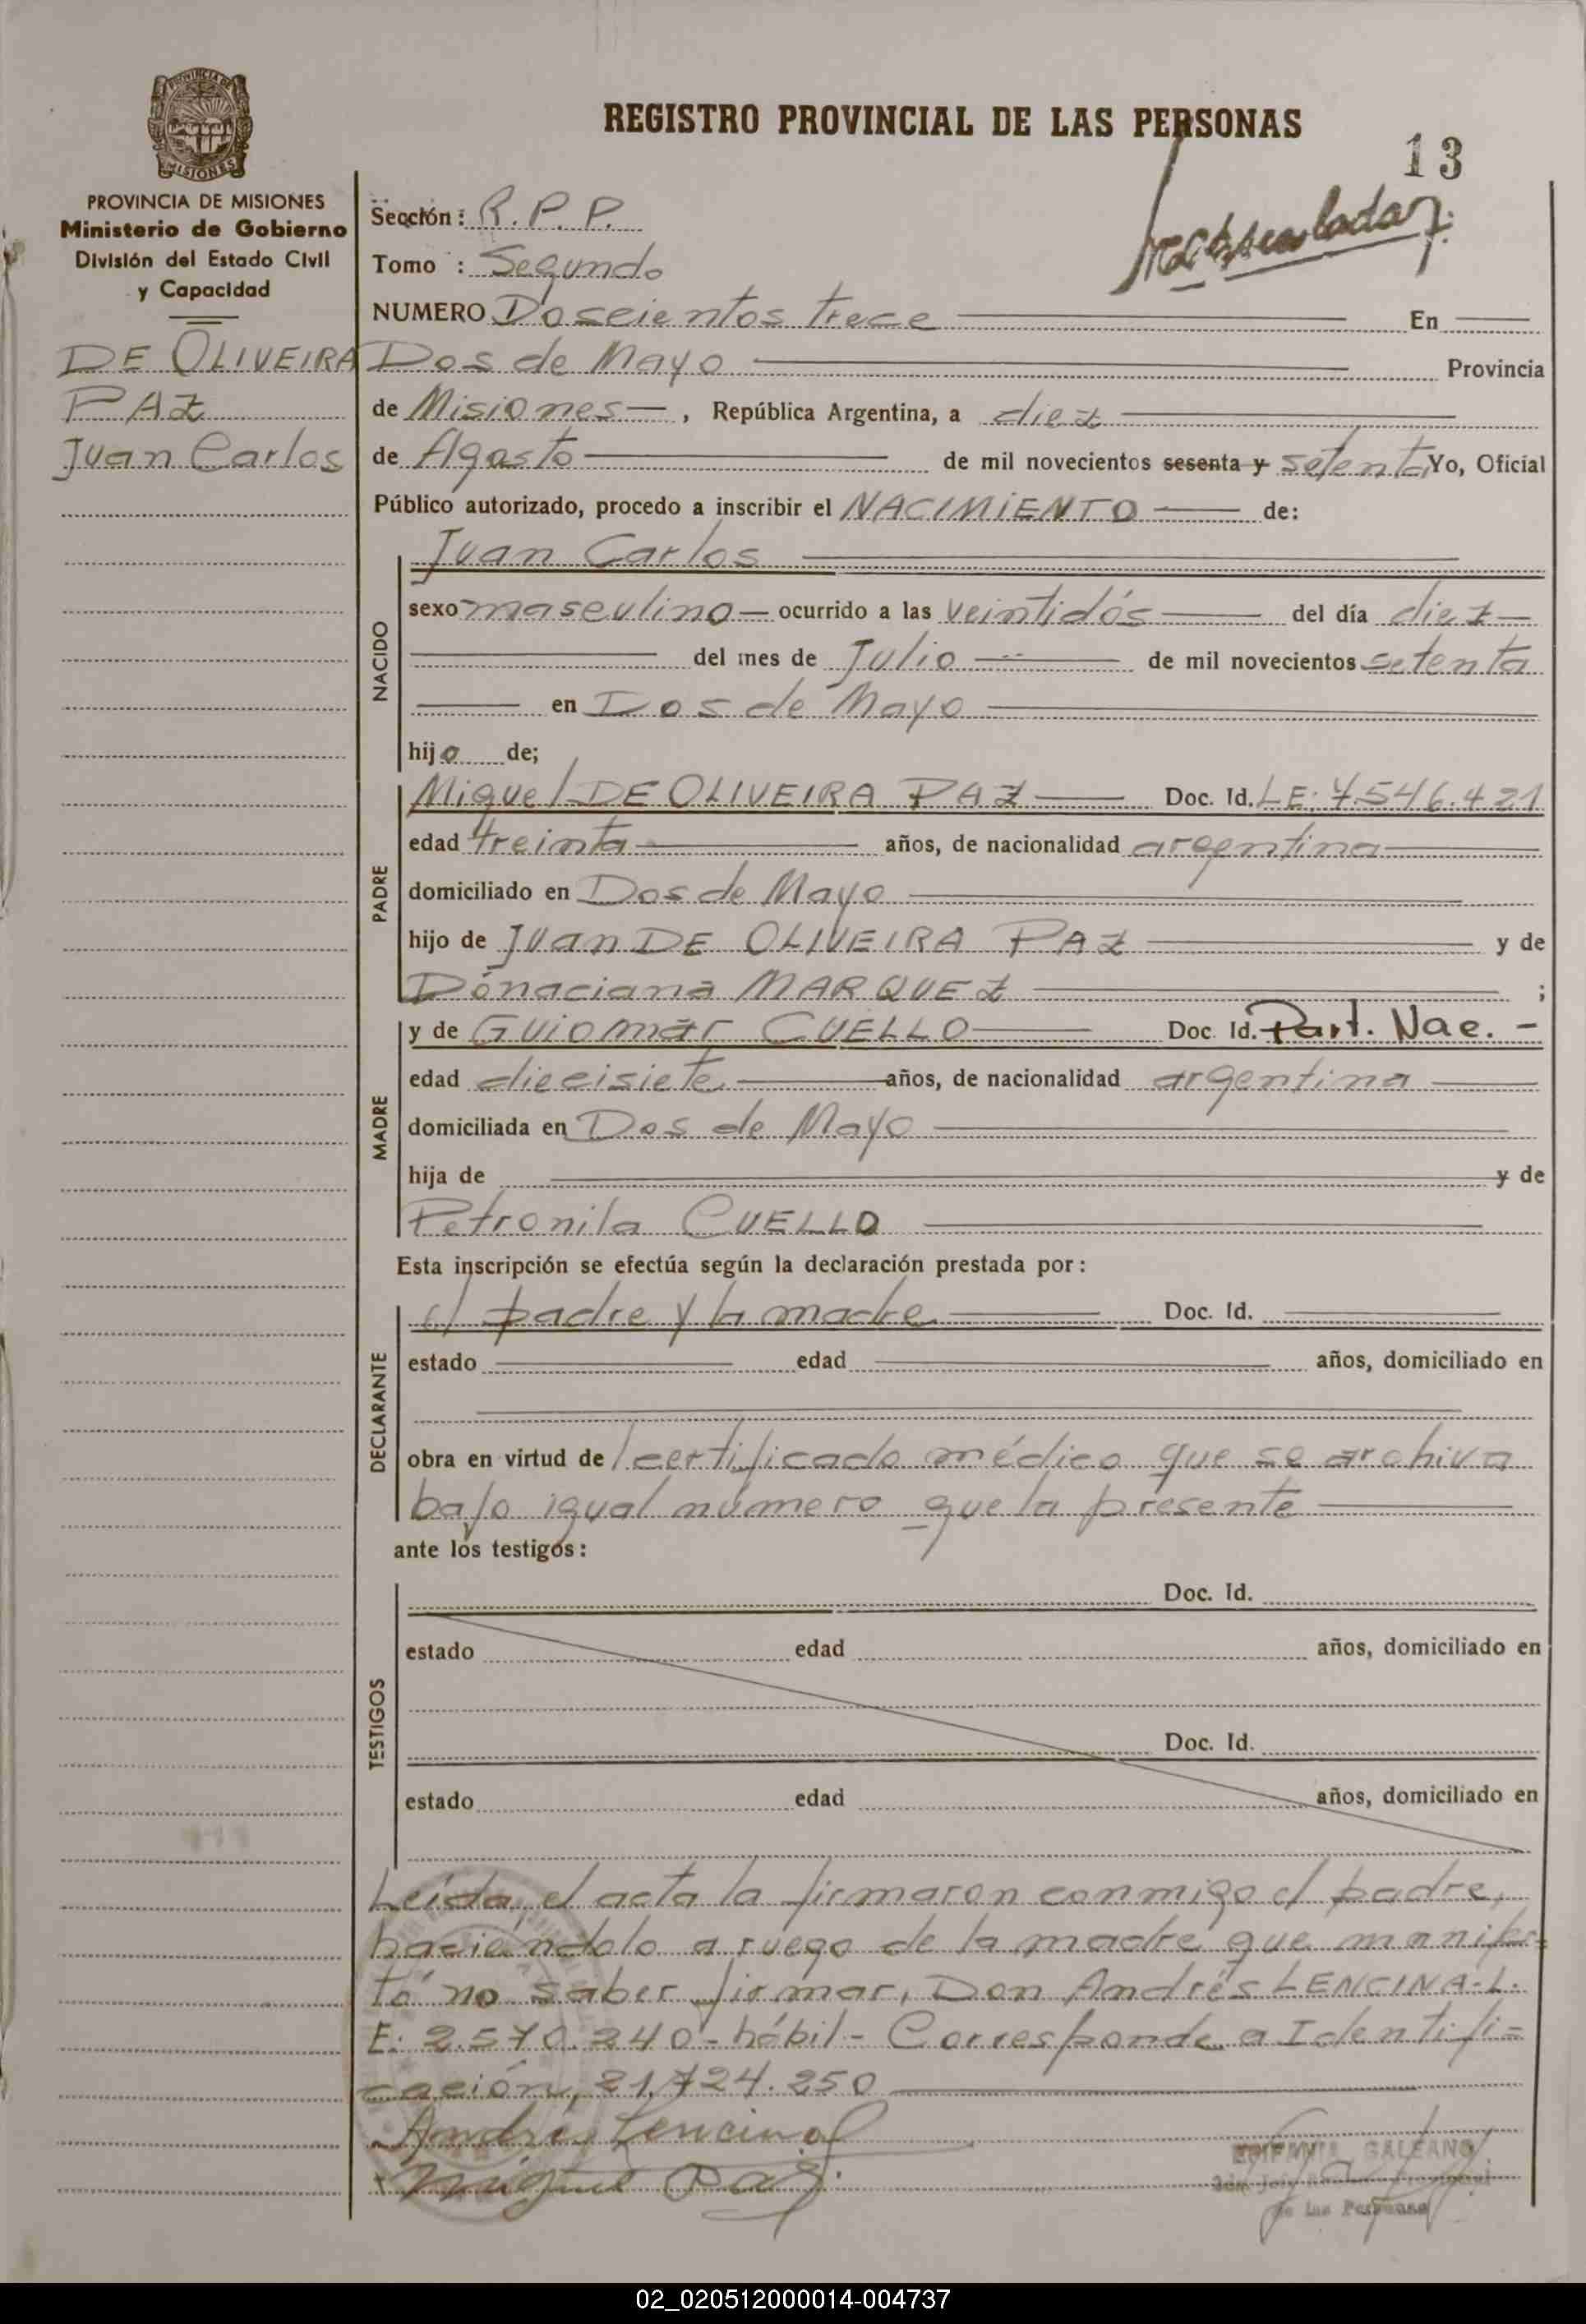 PROVINCIA DE MISIONES
REGISTRO PROVINCIAL DE LAS PERSONAS
13
PROVINCIA DE MISIONES
Ministerio de Gobierno
División del Estado Civil
y Capacidad
DE OLIVEIRA
PAZ
Juan Carlos
Sección: R.P.P.
Tomo : Segundo
NUMERO Doscientos trece En
Dos de Mayo Provincia
de Misiones , República Argentina, a diez
de Agosto de mil novecientos sesenta y setenta Yo, Oficial
Público autorizado, procedo a inscribir el NACIMIENTO de:
NACIDO
Juan Carlos
sexo masculino ocurrido a las veintidós del día diez
del mes de Julio de mil novecientos setenta
en Dos de Mayo
hijo de;
PADRE
Miguel DE OLIVEIRA PAZ Doc. Id. L.E: 7.546.421
edad treinta años, de nacionalidad argentina
domiciliado en Dos de Mayo
hijo de Juan DE OLIVEIRA PAZ y de
Donaciana MARQUEZ ;
MADRE
y de Guiomar CUELLO Doc. Id. Part. Nac. -
edad diecisiete años, de nacionalidad argentina
domiciliada en Dos de Mayo
hija de y de
Petronila CUELLO
Esta inscripción se efectúa según la declaración prestada por:
DECLARANTE
el padre y la madre Doc. Id.
estado edad años, domiciliado en
obra en virtud del certificado médico que se archiva
bajo igual número que la presente
ante los testigos:
TESTIGOS
Doc. Id.
estado edad años, domiciliado en
Doc. Id.
estado edad años, domiciliado en
Leída, el acta la firmaron conmigo el padre,
haciéndolo a ruego de la madre que manifes=
tó no saber firmar, Don Andrés LENCINA-L.
E: 2.570.240- hábil- Corresponde a Identifi=
cación, 21.724.250
Andrés Lencina
Miguel Paz
EPIFANIA GALEANO
de las Personas
02_020512000014-004737